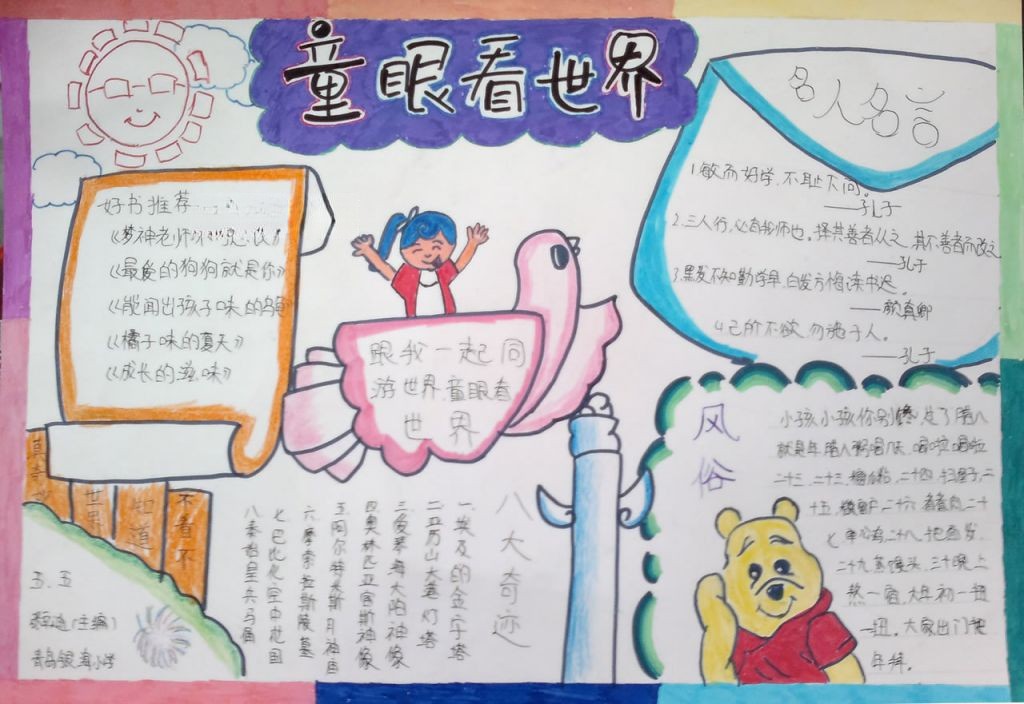 童眼看世界
好书推荐
《最爱的狗狗就是你》
《能闻出孩子味的乌鱼
《橘子味的夏天》
《成长的滋味》
跟我一起同
游世界,童眼看
世界
名人名言
1.敏而好学,不耻下问。
——孔子
2.三人行,必有我师也。择其善者从之,其不善者而改之
——孔子
3.黑发不知勤学早,白发方悔读书迟。
——颜真卿
4.己所不欲,勿施于人。
——孔子
不看不
知道
世界
五.五
(主编)
青岛银海小学
八大奇迹
一.埃及的金字塔
二.亚历山大港灯塔
三.爱琴海太阳神像
四.奥林匹亚宙斯神像
五.阿尔特米斯月神庙
六.摩索拉斯陵墓
七.巴比伦空中花园
八.秦始皇兵马俑
风俗
小孩小孩你别馋,过了腊八
就是年,腊八粥喝几天,哩哩啦啦
二十三,二十三,糖瓜粘,二十四,扫房子,二
十五,
二十
二十九,蒸馒头,三十晚上
熬一宿,大年初一扭
一扭,大家出门把
年拜。